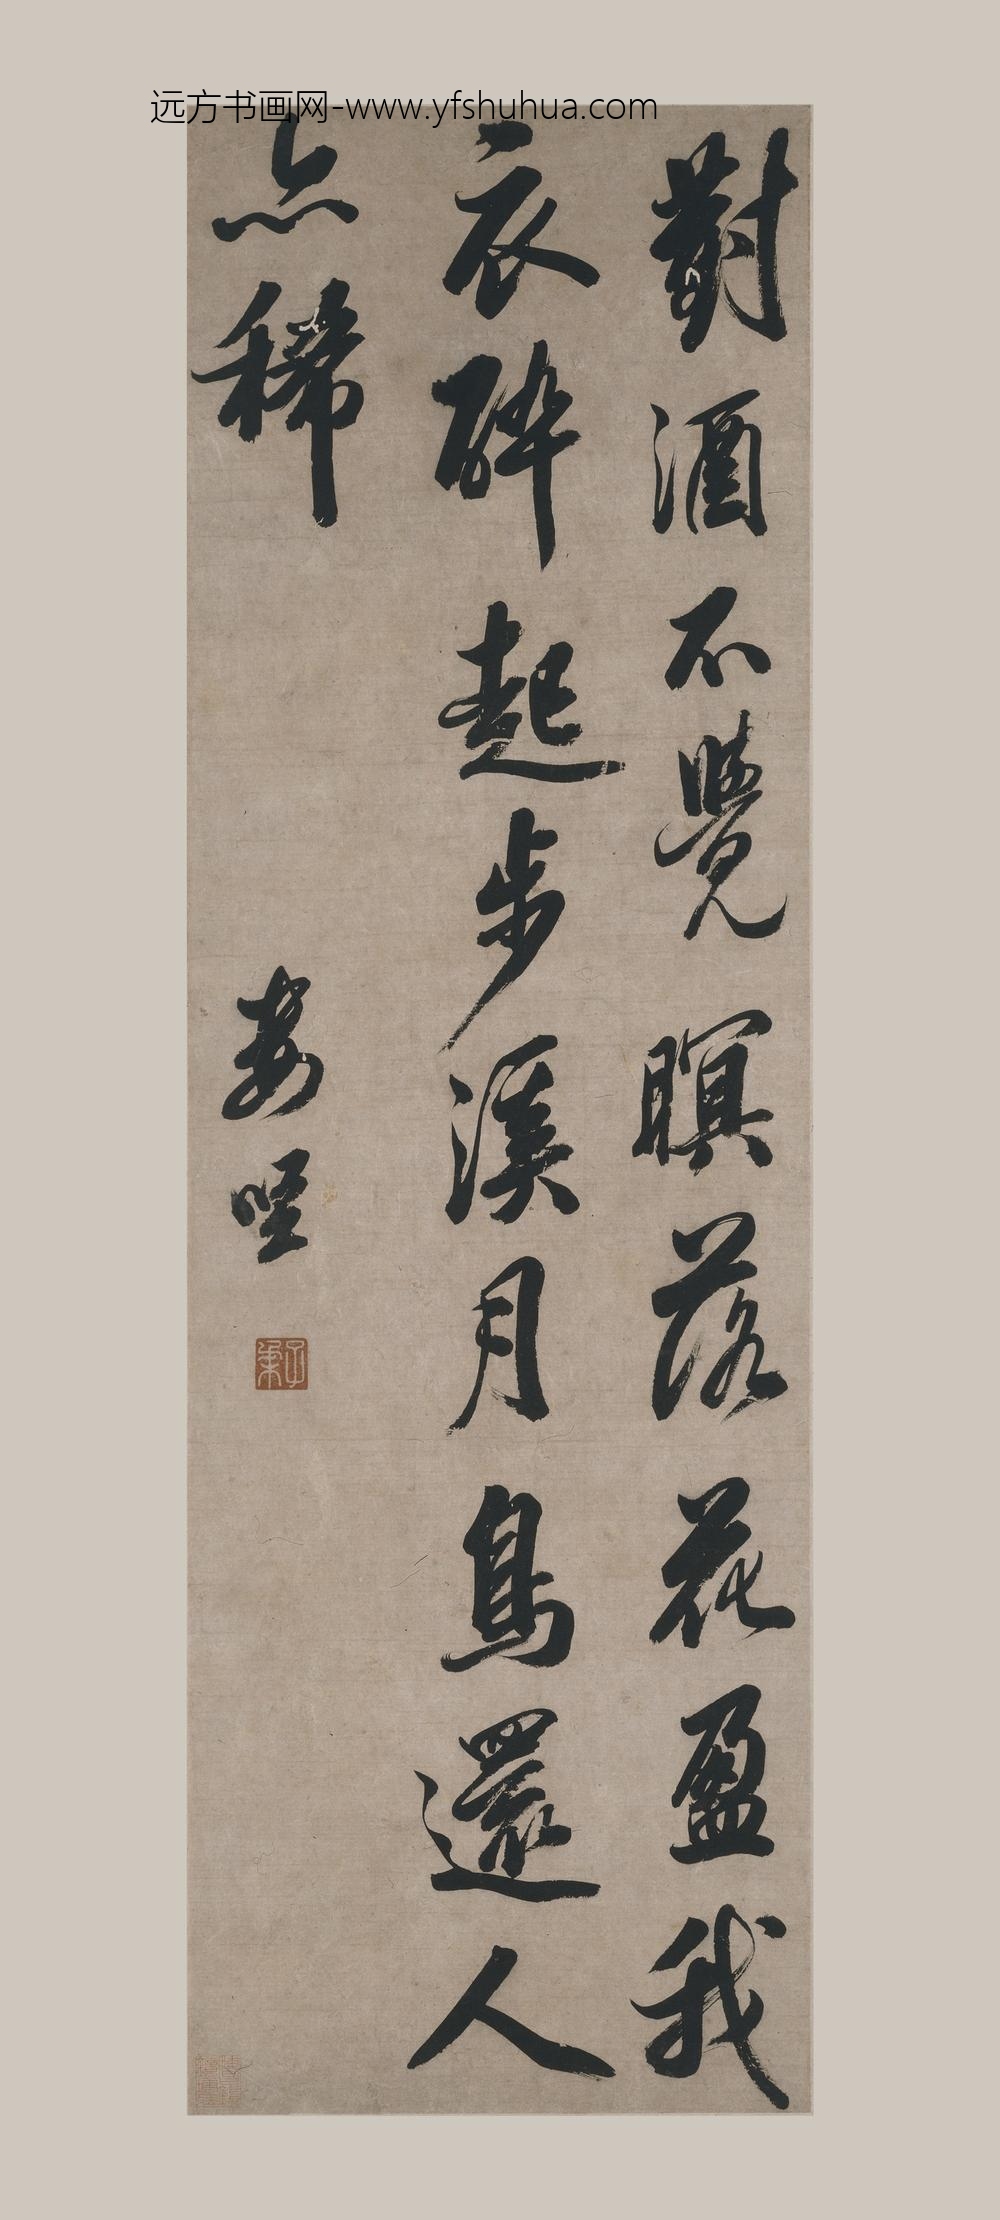 远方书画网-www.yfshuhua.com
對酒不覺暝落花盈我
衣醉起步溪月鳥還人
亦稀
婁堅
子柔